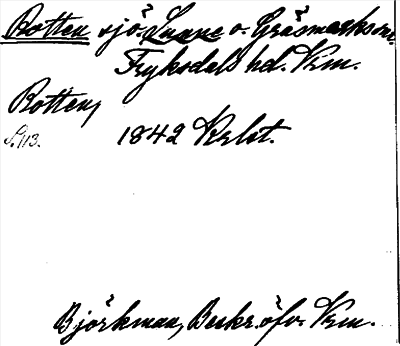 Rotten sjö Sunne o. Gräsmarks sn.
Fryksdals hd. Vrm.
Rotten,
S. 113.
1842 Krlst.
Björkman, Beskr. öfv. Vrm.